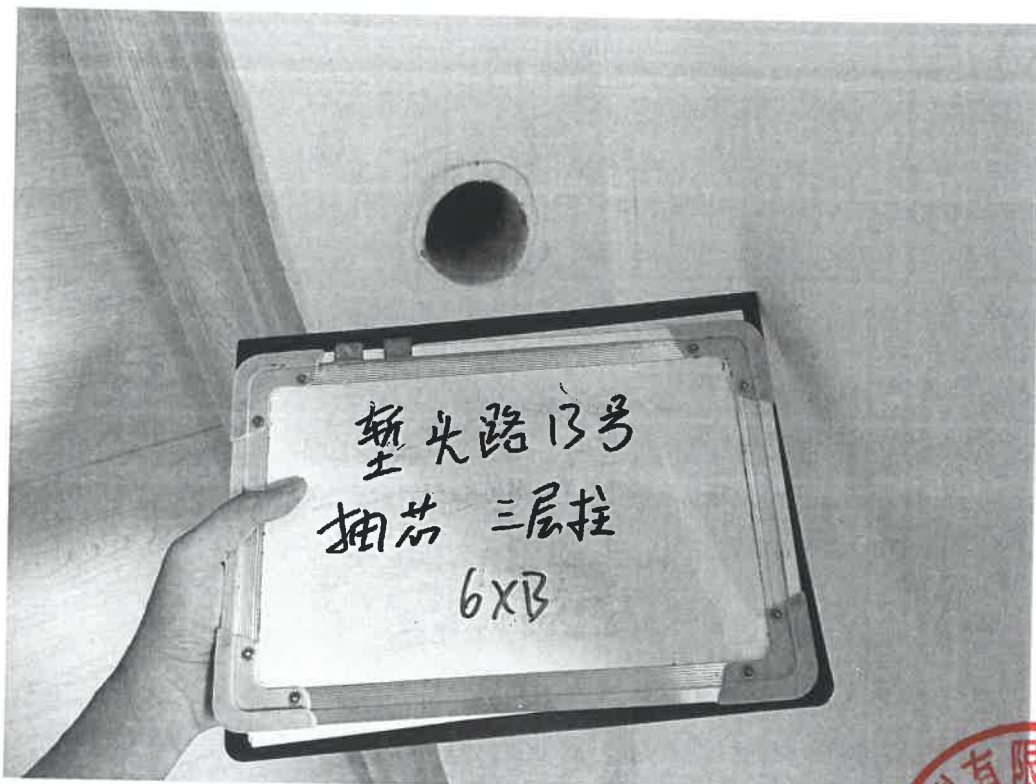 塹头路13号
抽芯 三层柱
6XB
有限